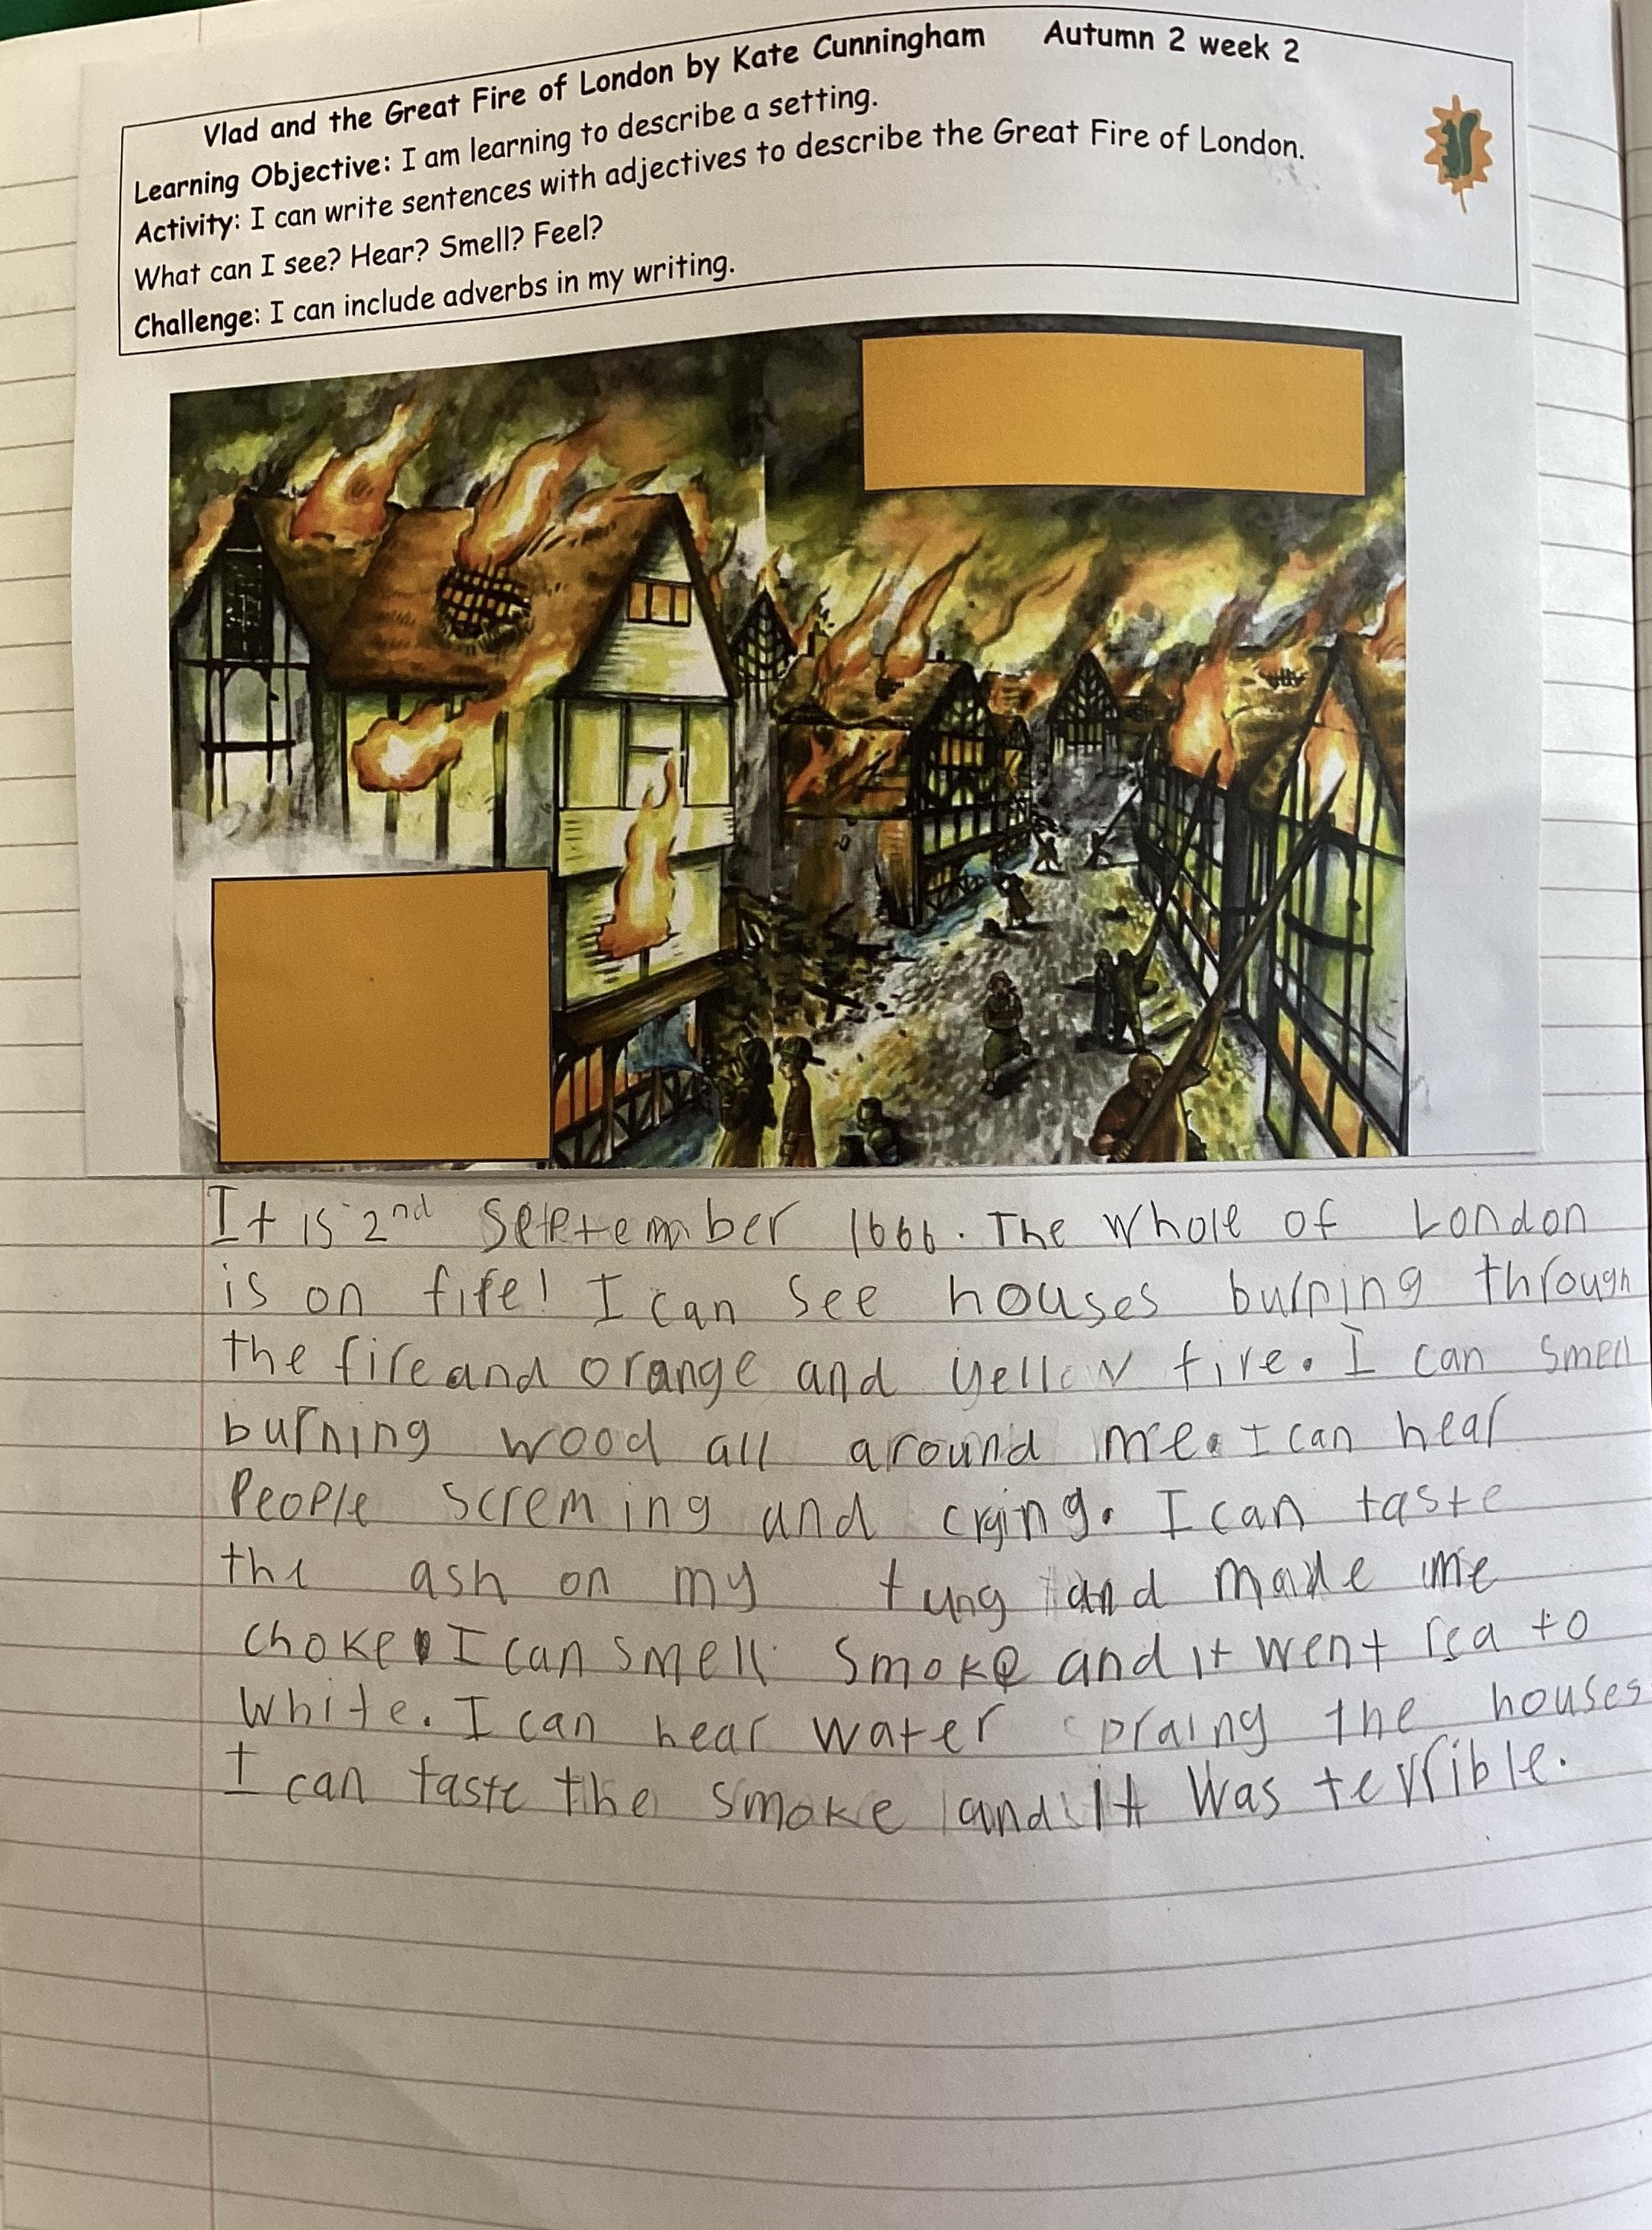 Vlad and the Great Fire of London by Kate Cunningham Autumn 2 week 2
Learning Objective: I am learning to describe a setting.
Activity: I can write sentences with adjectives to describe the Great Fire of London.
What can I see? Hear? Smell? Feel?
Challenge: I can include adverbs in my writing.
It is 2nd September 1666. The whole of London
is on fire! I can see houses burning through
the fire and orange and yellow fire. I can smell
burning wood all around me. I can hear
People screming and crying. I can taste
the ash on my tung and made me
choke. I can smell smoke and it went to
white. I can hear water spraing the houses
I can taste the smoke and it was terrible.